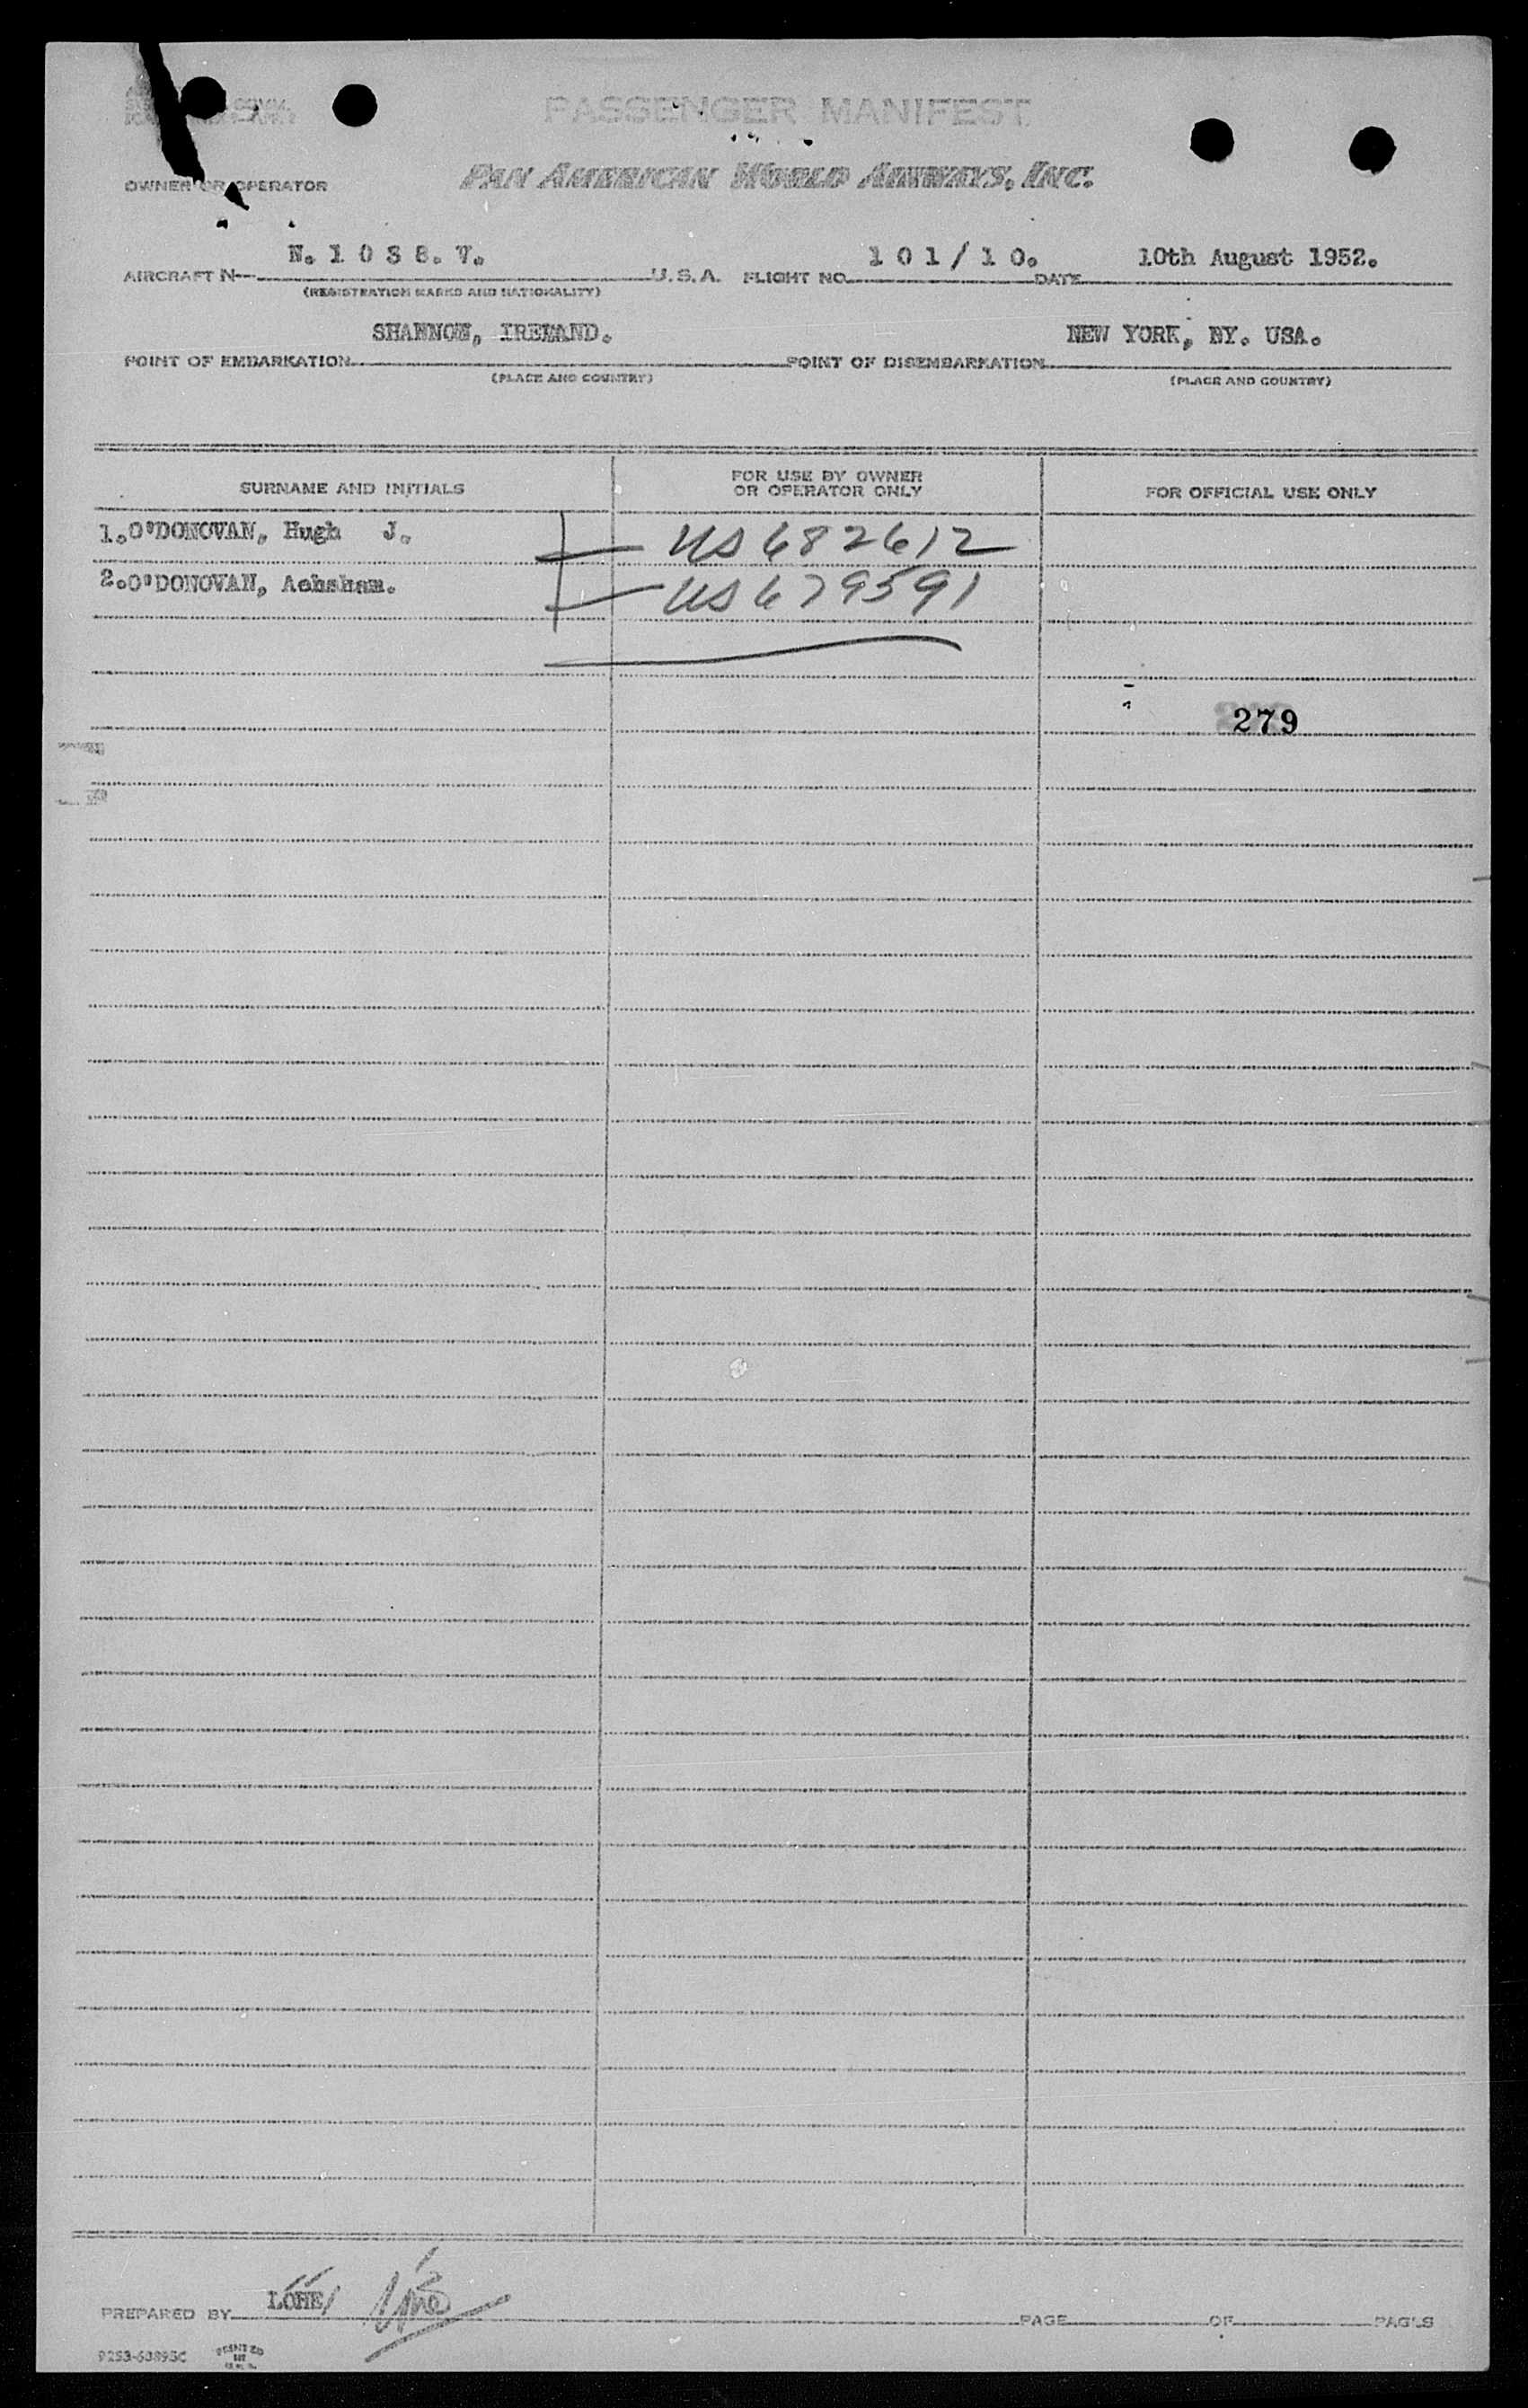 PASSENGER MANIFEST
PAN AMERICAN WORLD AIRWAYS, INC.
OWNER OR OPERATOR
AIRCRAFT N N. 1 0 3 8. V. U.S.A. FLIGHT NO. 1 0 1 / 1 0. DATE 10th August 1952.
(REGISTRATION MARKS AND NATIONALITY)
POINT OF EMBARKATION SHANNON, IRELAND. POINT OF DISEMBARKATION NEW YORK, NY. USA.
(PLACE AND COUNTRY) (PLACE AND COUNTRY)
SURNAME AND INITIALS FOR USE BY OWNER OR OPERATOR ONLY FOR OFFICIAL USE ONLY
1.O'DONOVAN, Hugh J. US 682612
2.O'DONOVAN, Achsham. US 679591
279
PREPARED BY LOHE/ PAGE OF PAGES
PRINTED IN